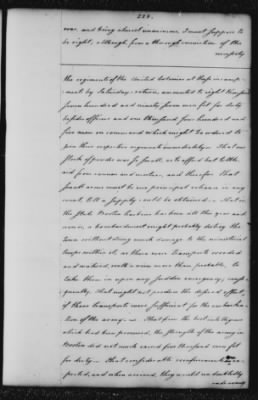 228.
war and being almost unanimous I must suppose to
be right, although from a thorough conviction of the
necessity
the regiments of the United Colonies at
ment by Saturday returns, amounted to eight thousand
four hundred and men fit for duty
besides officers and one thousand four hundred and
five men on command which might be ordered to
join their respective regiments immediately. That our
stock of powder was so small, as to afford but little
aid from cannon and mortars, and therefore That
small arms must be our principal reliance in any
event till a supply could be obtained. That on
the Boston harbour has been all this year and
now is, a bombardment might probably destroy the
town without doing much damage to the ministerial
troops within it, as there were transports wooded
and watered, with a view more than probable, to
take them in upon any sudden emergency, conse-
quently, That might not produce the desired effect,
if these transports were sufficient for the embarka-
tion of the army. That from the best intelligence
which had been procured, the strength of the army in
Boston did not much exceed five thousand men fit
for duty. That considerable reinforcements ex-
pected, and when arrived, they would undoubtedly
endeavour